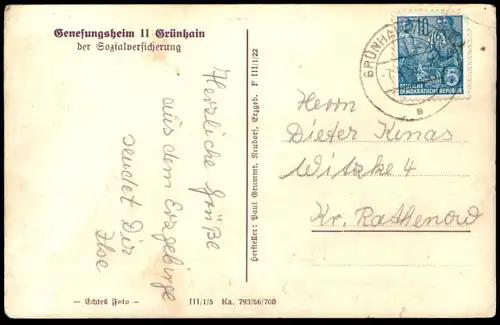 Genesungsheim II Grünhain
der Sozialversicherung
Herzliche Grüße
aus dem Erzgebirge
sendet Dir
Ilse
— Echtes Foto —
III/1/5 Ka. 793/56/700
Hersteller: Paul Grummt, Neudorf, Erzgeb. F III/1/22
GRÜNHA
a
10
5
DEUTSCHE
DEMOKRATISCHE REPUBLIK
Herrn
Dieter Kunas
Witzke 4
Kr. Rathenow